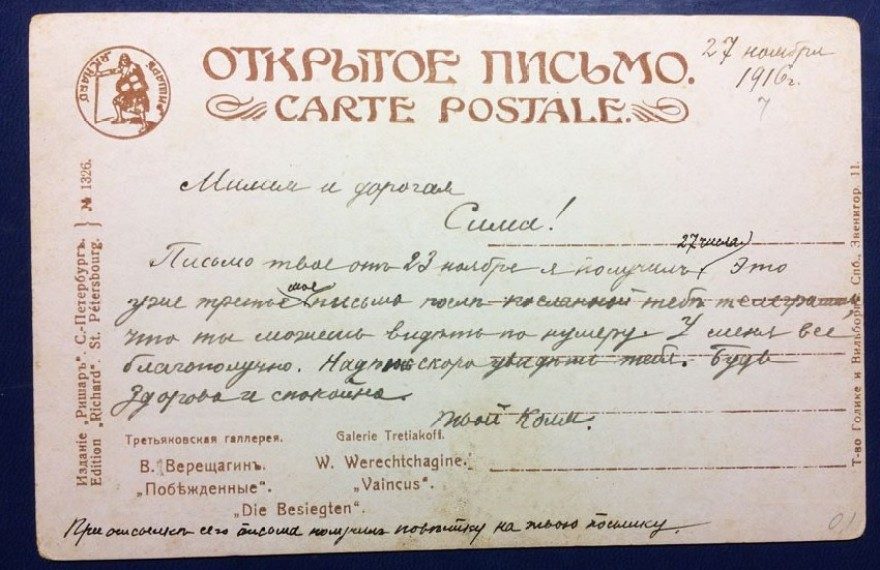 ОТКРЫТОЕ ПИСЬМО.
CARTE POSTALE.
27 ноября
1916 г.
7
РИШАРЪ
RICHARD
Милая и дорогая
Сима!
27 числа
Письмо твое отъ 23 ноября я получилъ. Это
уже третье мое письмо послѣ посланной тебѣ телеграммы,
что ты можешь видѣть по нумеру. У меня все
благополучно. скоро увидѣть тебя. Будь
здорова и спокойна.
твой Коля.
Изданіе „Ришаръ“. С.-Петербургъ.
Edition „Richard“. St. Pétersbourg.
№ 1326.
Третьяковская галлерея.
Galerie Tretiakoff.
В. Верещагинъ.
W. Werechtchagine.
„Побѣжденные“.
„Vaincus“.
„Die Besiegten“.
При отсылкѣ сего письма получилъ повѣстку на твою посылку.
Т-во Голике и Вильборгъ. Спб., Звенигор. 11.